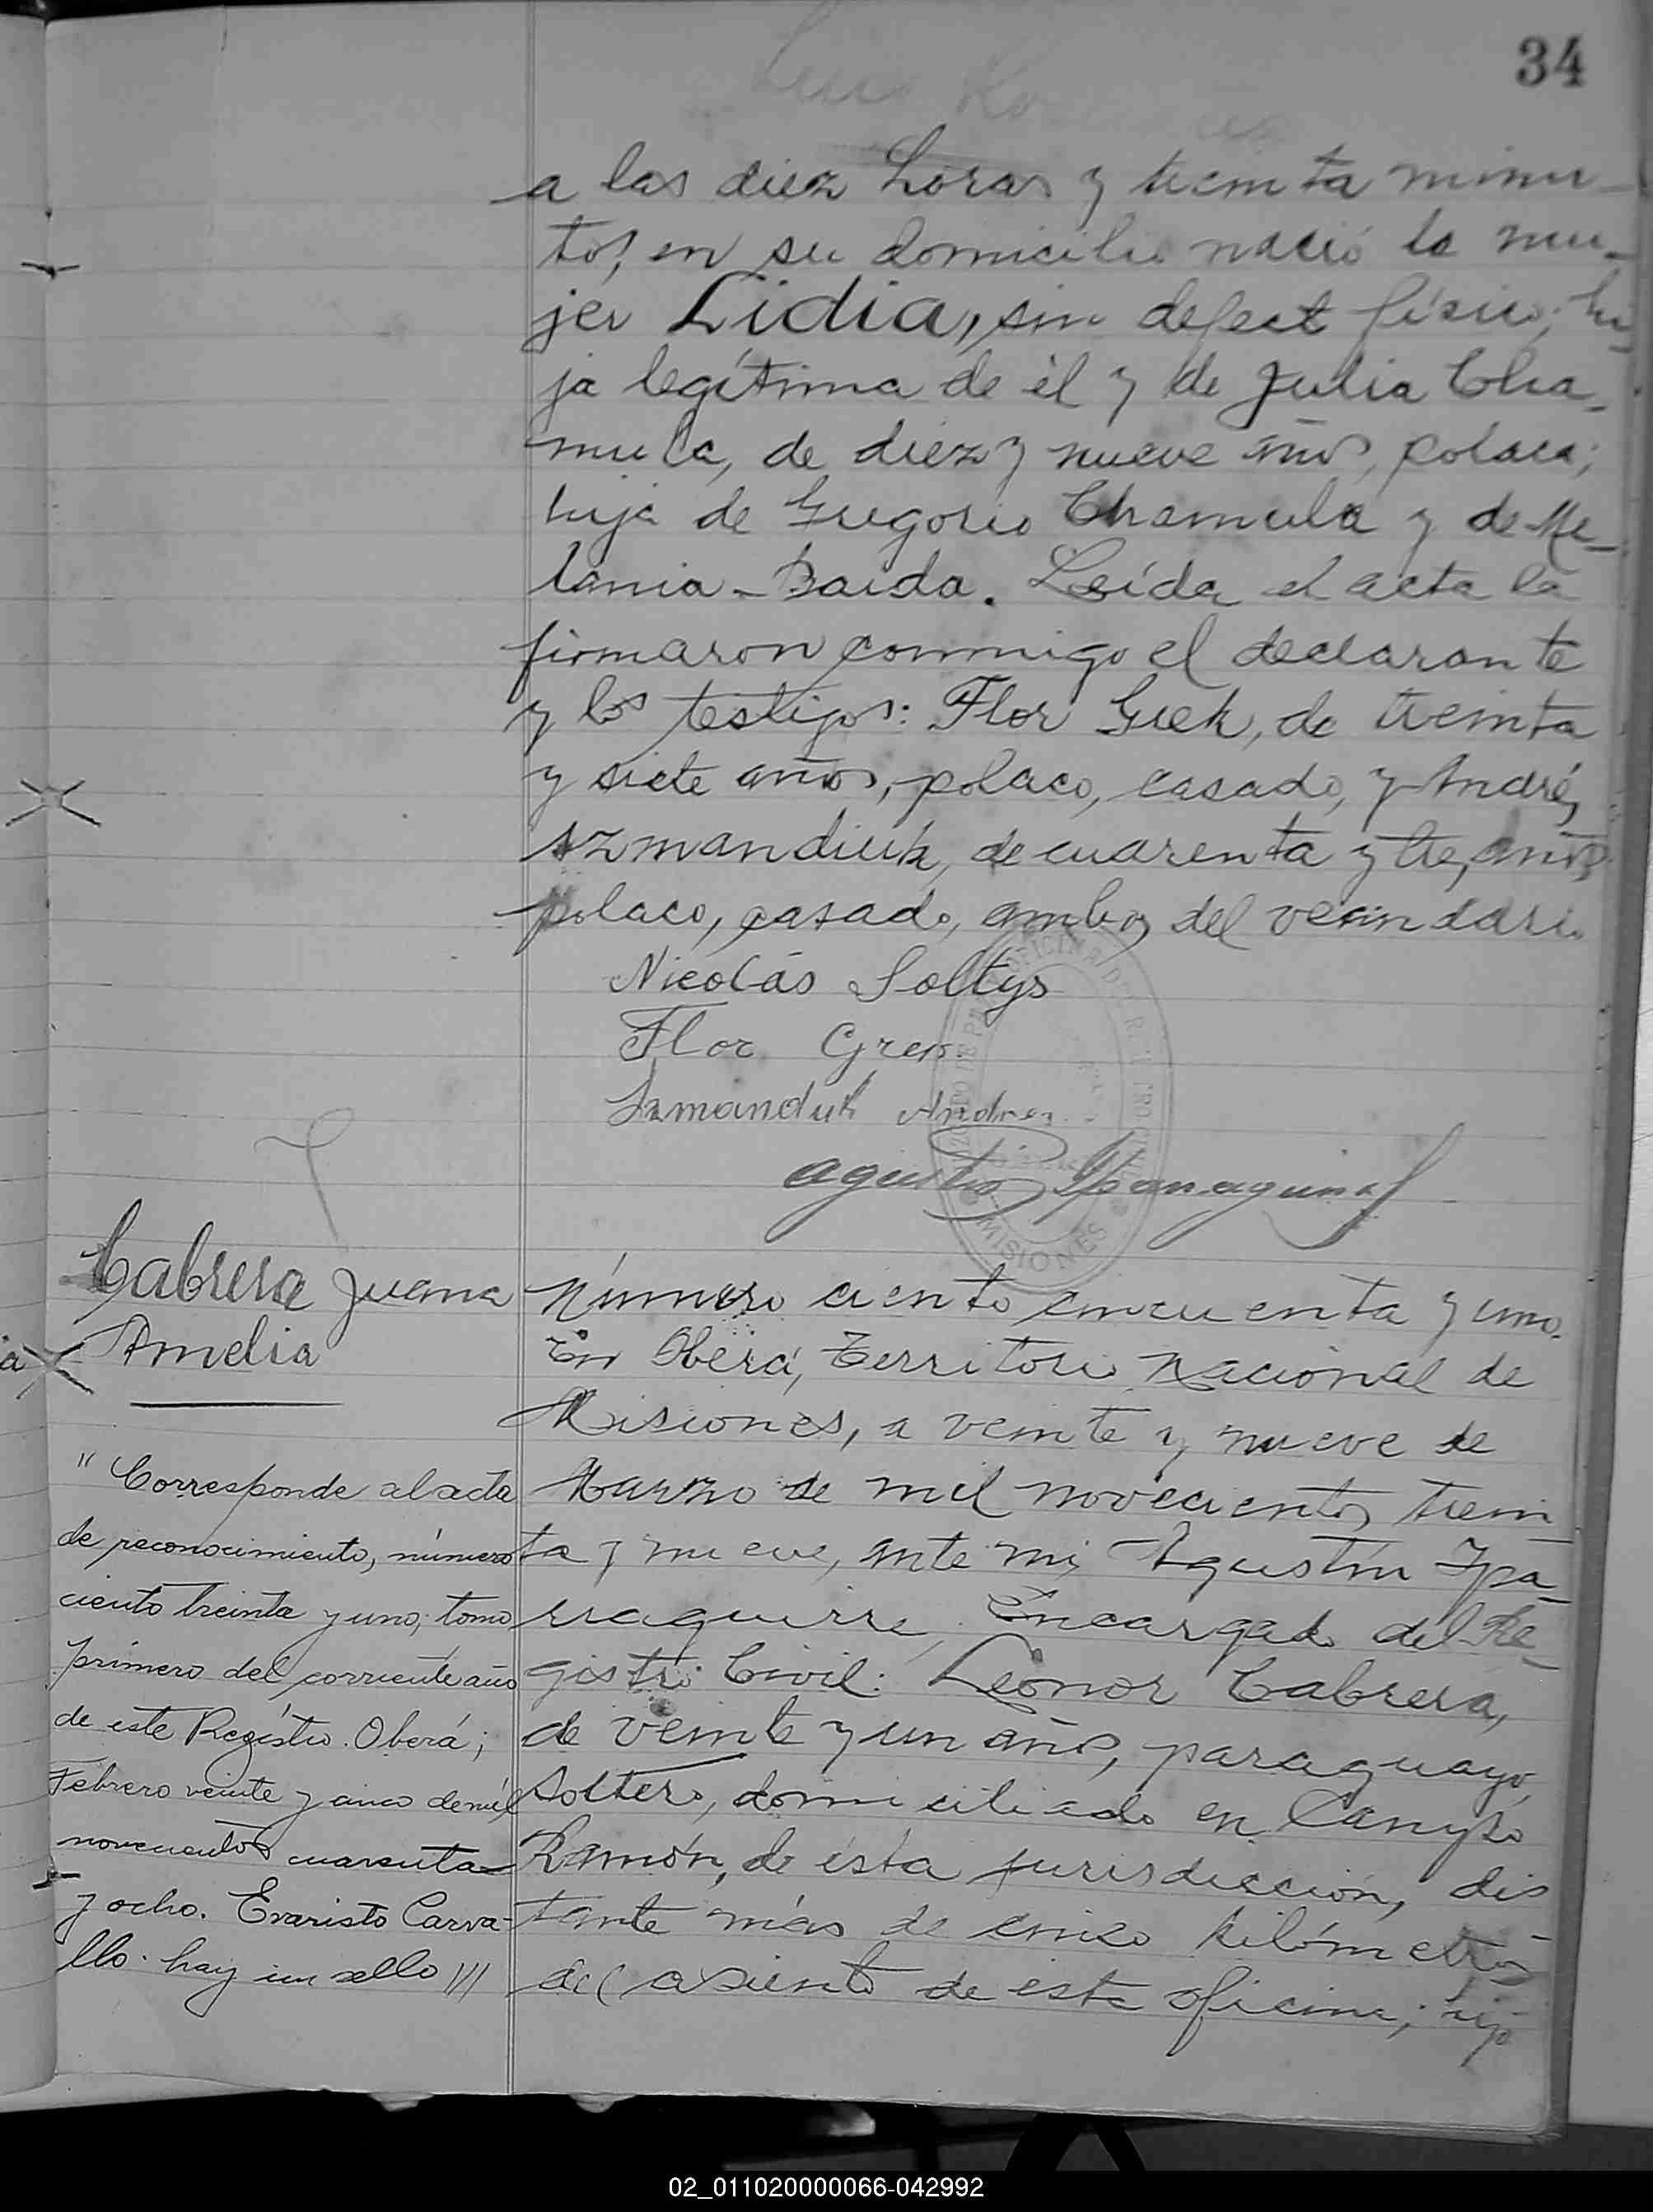 34
a las diez horas y treinta minu-
tos, en su domicilio nació la mu-
jer Lidia, sin defect físico; hi-
ja legítima de él y de Julia Cha-
mula, de diez y nueve años, polaca;
hija de Gregorio Chamula y de Me-
lania Baida. Leída el acta la
firmaron conmigo el declarante
y los testigos: Flor Guek, de treinta
y siete años, polaco, casado, y Andrés
Szmandiuk, de cuarenta y tres años
polaco, casado, ambos del vecindario
Nicolás Soltys
Flor
Szmanduk Andres
OFICINA DE
MISIONES
Agustin
Cabrera Juana
Amelia
"Corresponde al acta
de reconocimiento, número
ciento treinta y uno; tomo
primero del corriente año
de este Registro. Oberá;
Febrero veinte y cinco de mil
novecientos cuarenta
y ocho. Evaristo Carva-
llo. hay un sello ///
Número ciento cincuenta y uno.
En Oberá, Territorio Nacional de
Misiones, a veinte y nueve de
Marzo de mil novecientos trein
ta y nueve, ante mi, Agustín Ypa-
rraguirre, Encargado del Re-
gistro Civil: Leonor Cabrera,
de veinte y un años, paraguayo,
soltero, domiciliado en Campo
Ramón, de ésta jurisdicción, dis
tante más de cinco kilómetros
del asiento de esta oficina; hijo
02_011020000066-042992